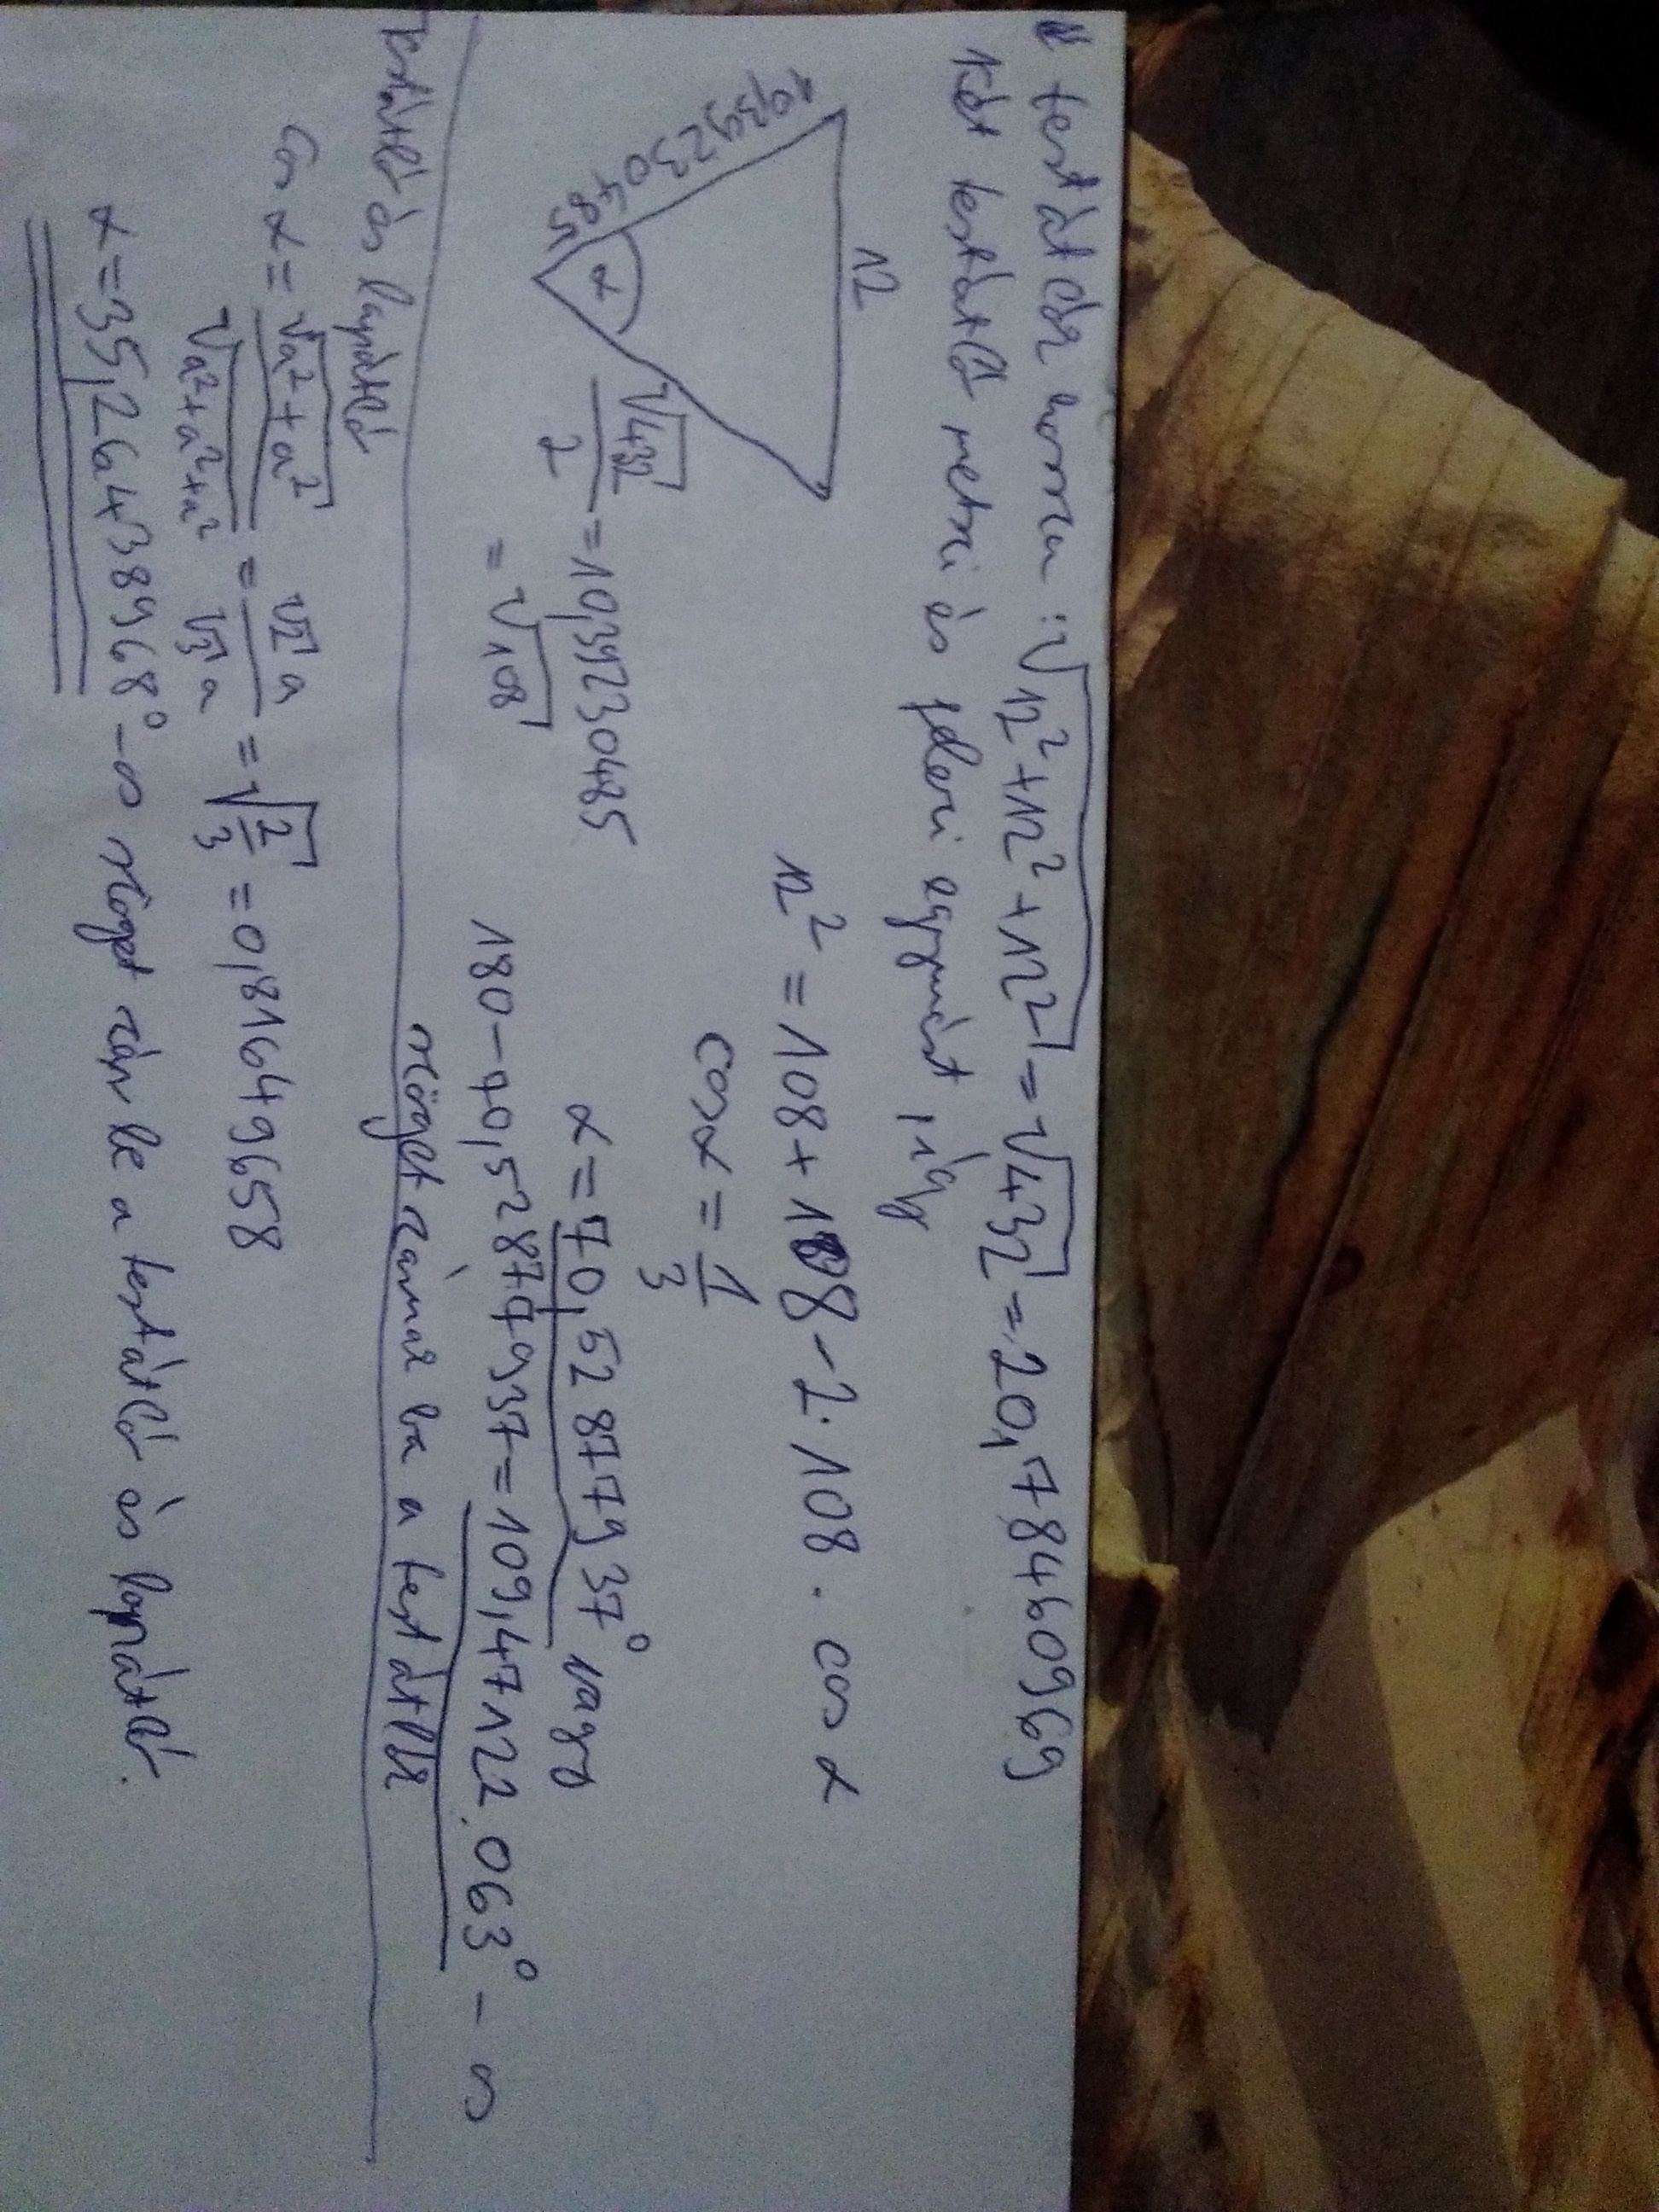 A testátlók hossza: √12²+12²+12² = √432 = 20,78460969
Két testátló metszi és felezi egymást, így
12
10,39230485
α
√432/2 = 10,39230485
= √108
12² = 108 + 108 - 2 · 108 · cos α
cos α = 1/3
α = 70,52877937° vagy
180 - 70,52877937 = 109,4712206 3° - os
szöget zárnak be a testátlók
testátló és lapátló
cos α = √a²+a² / √a²+a²+a² = √2 a / √3 a = √2/3 = 0,8164949658
α = 35,26438968° -os szöget zár be a testátló és lapátló.